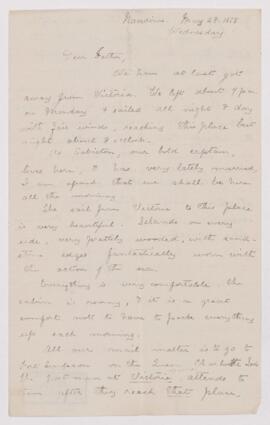 Nanaimo. May 29. 1878
Wednesday
Dear Father,
We have at last got
away from Victoria. We left about 9 p.m.
on Monday & sailed all night & day
with fair winds, reaching this place last
night about 8 o'clock.
Sabiston, our bold captain,
lives here, & has very lately married,
I am afraid that we shall be here
all the morning.
The sail from Victoria to this place
is very beautiful. Islands on every
side, very prettily wooded, with sand-
stone edges fantastically worn with
the action of the sea.
Everything is very comfortable. The
cabin is roomy, & it is a great
comfort not to have to pack everything
up each morning.
All our mail matter is to go to
Fort Simpson on the Queen Charlotte Isds
the postman at Victoria attends to
them after they reach that place.